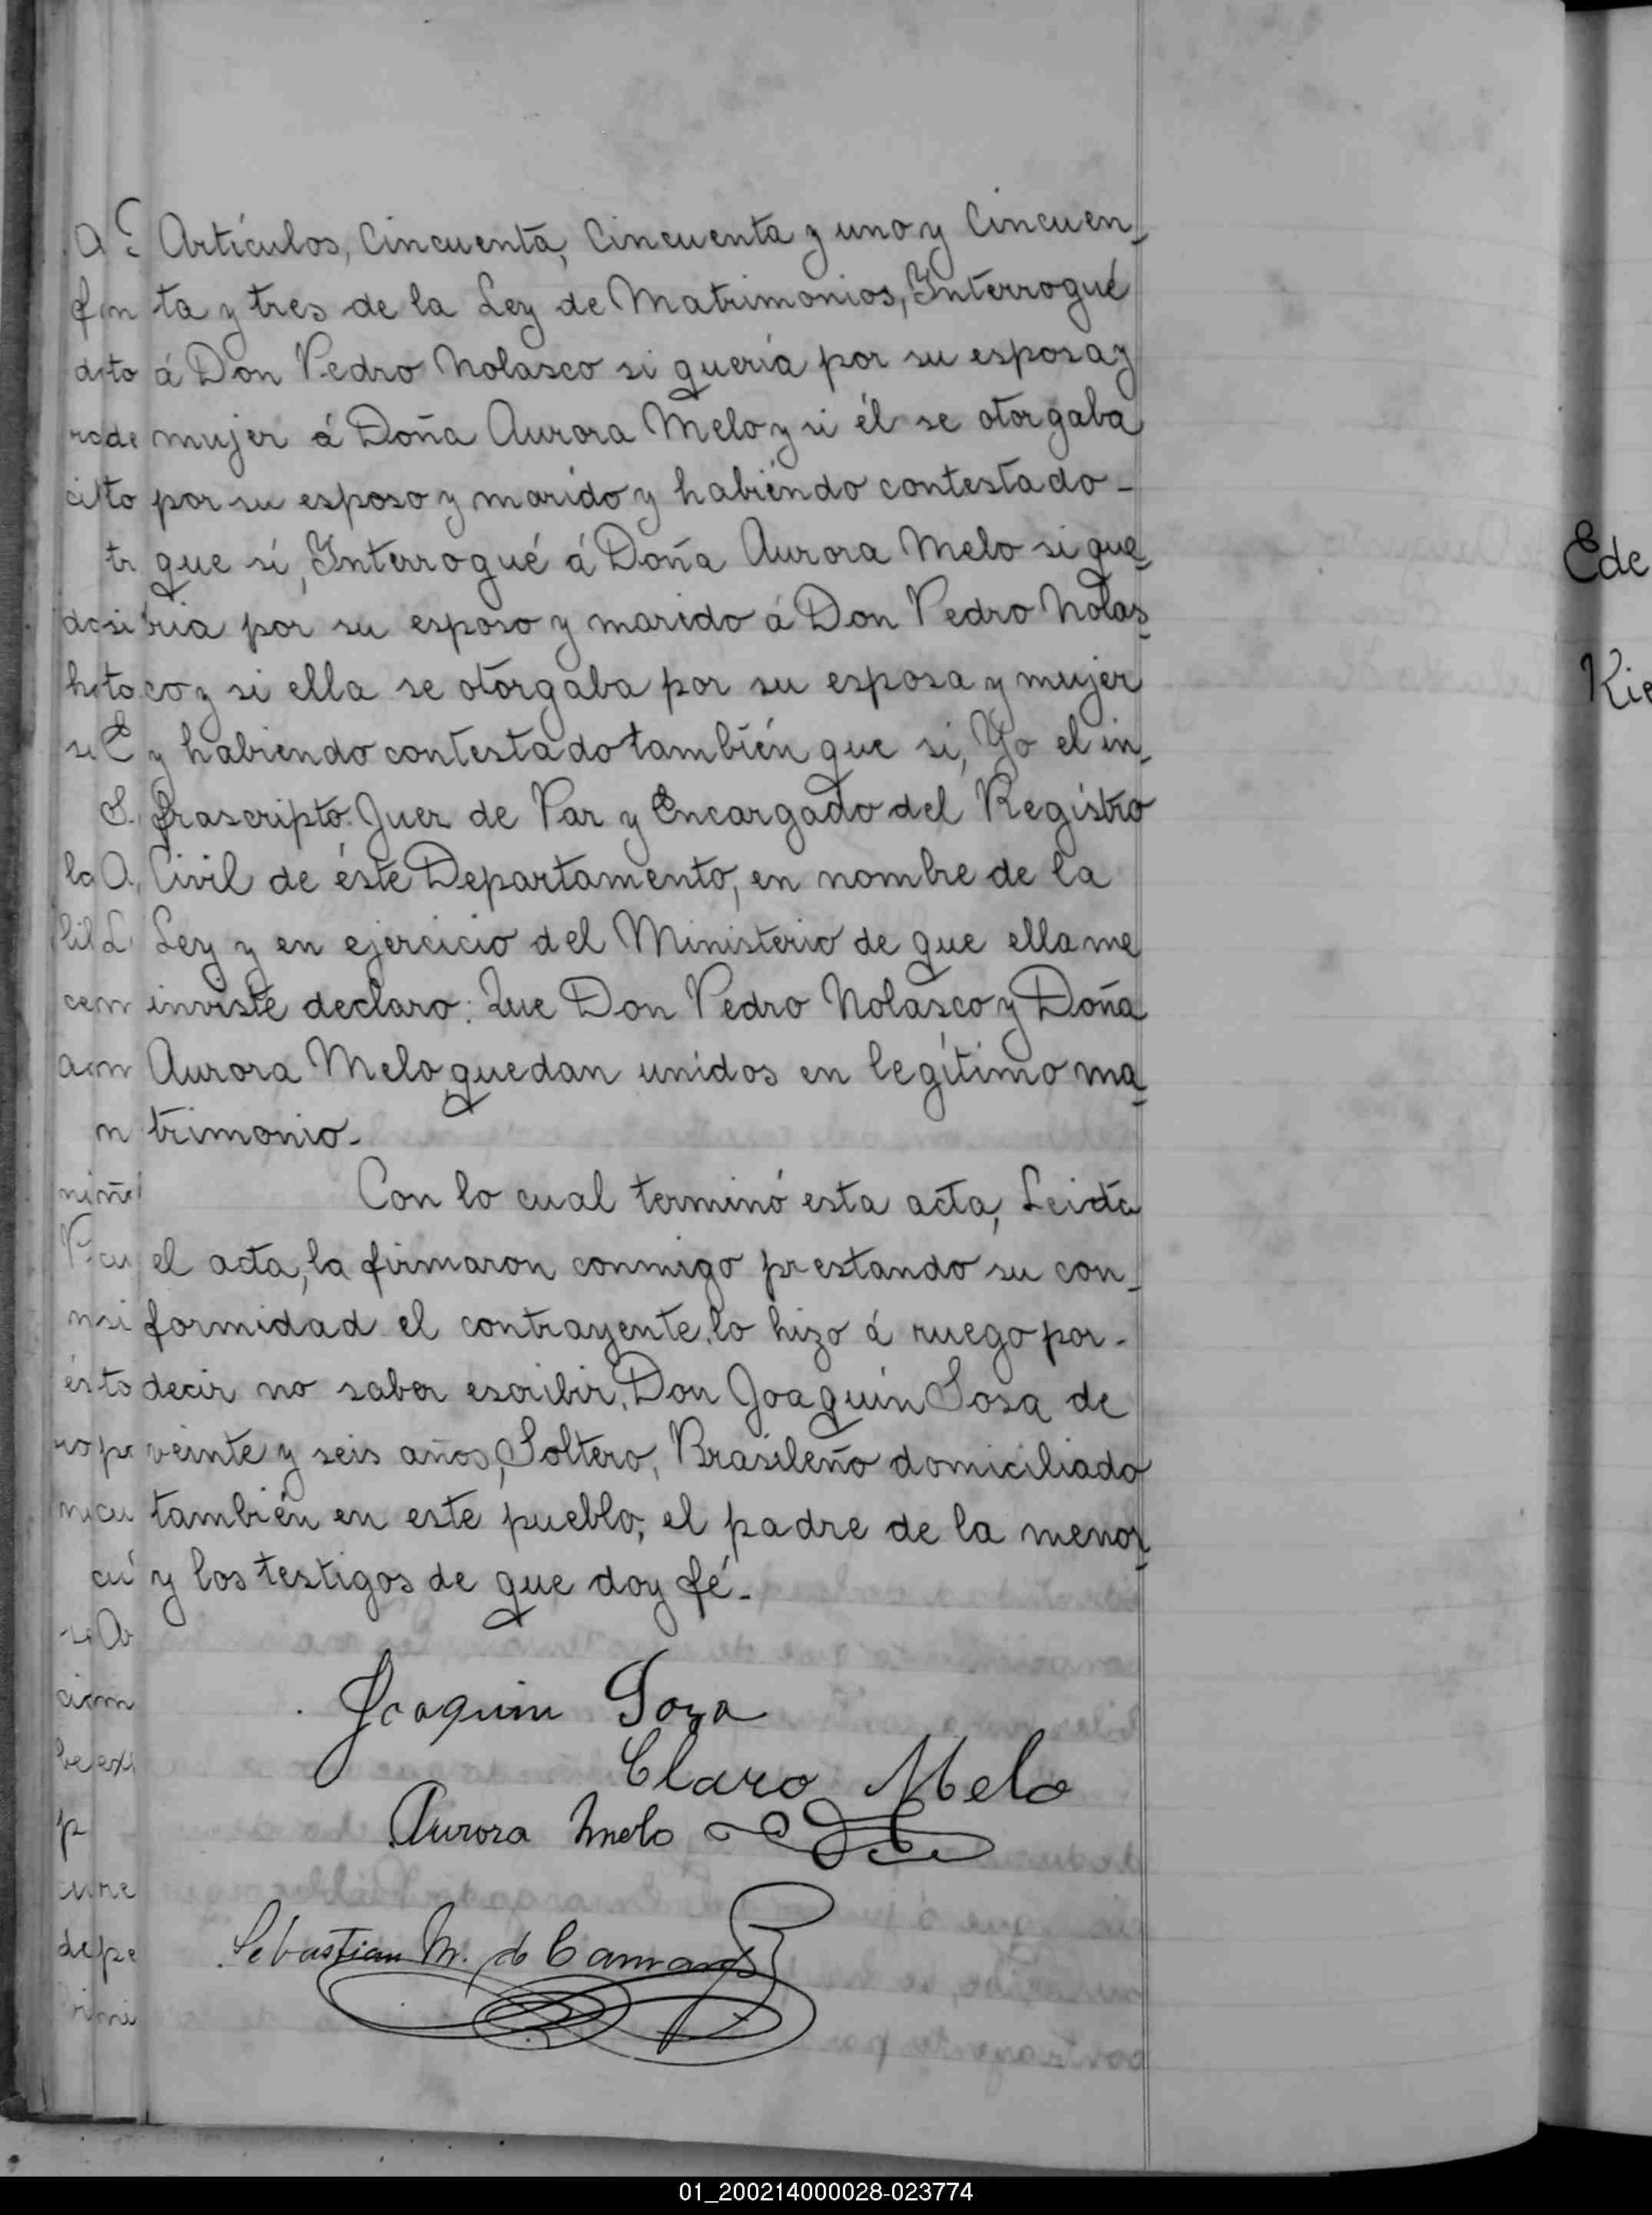 Artículos, Cincuenta, Cincuenta y uno y Cincuen-
ta y tres de la Ley de Matrimonios, Interrogué
á Don Pedro Nolasco si quería por su esposa y
mujer á Doña Aurora Melo y si él se otorgaba
por su esposo y marido y habiéndo contestado-
que sí, Interrogué á Doña Aurora Melo si que-
ria por su esposo y marido á Don Pedro Nolas-
co y si ella se otorgaba por su esposa y mujer
y habiendo contestado también que si, Yo el in-
frascripto Juez de Paz y Encargado del Registro
Civil de éste Departamento, en nombre de la
Ley y en ejercicio del Ministerio de que ella me
inviste declaro: Que Don Pedro Nolasco y Doña
Aurora Melo quedan unidos en legítimo ma-
trimonio-
Con lo cual terminó esta acta, Leida
el acta, la firmaron conmigo prestando su con-
formidad el contrayente, lo hizo á ruego por-
decir no saber escribir, Don Joaquín Sosa de
veinte y seis años, Soltero, Brasileño domiciliado
también en este pueblo, el padre de la menor
y los testigos de que doy fé-
Joaquim Soza
Claro Melo
Aurora Melo
Sebastian M. de Camargo
Ede
Kie
01_200214000028-023774